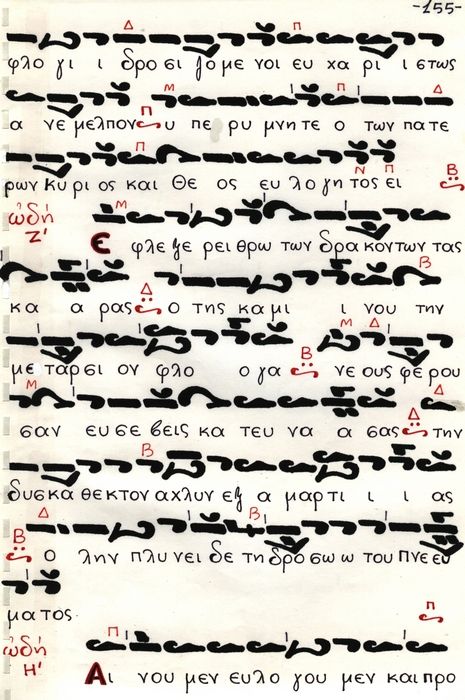 -155-
Δ Π
φλο γι ι δρο σι ζο με νοι ευ χα ρι ι στως
Μ Π Δ
α νε μελ πον Π υ πε ρυ μνη τε ο των πα τε
Π Ν Π
ρων Κυ ρι ος και Θε ος ευ λο γη τος ει Β
ὠδή Ζ' Μ
Ε φλε ξε ρει θρω των δρα κον των τας
Β
κα α ρας Δ ο της κα μι ι νου την
Μ Δ
με ταρ σι ον φλο ο γα Β νε ους φε ρου
Μ Δ
σαν ευ σε βεις κα τευ να α σας Δ την
Β
δυσ κα θεκ τον αχ λυν εξ α μαρ τι ι ι ας
Δ Β
Β ο λην πλυ νει δε τη δρο σω ω του Πνε ευ
μα τος
ὠδή Η' Π Π
Αι νου μεν ευ λο γου μεν και προ